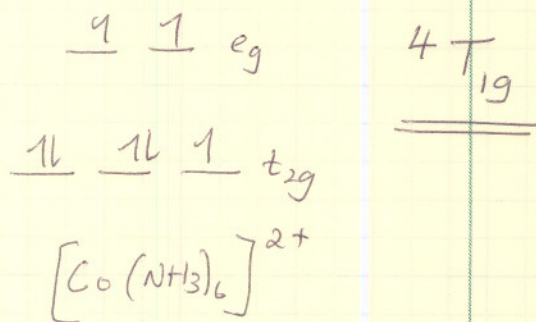 1 1 eg
1l 1l 1 t2g
[Co(NH3)6]2+
4T1g